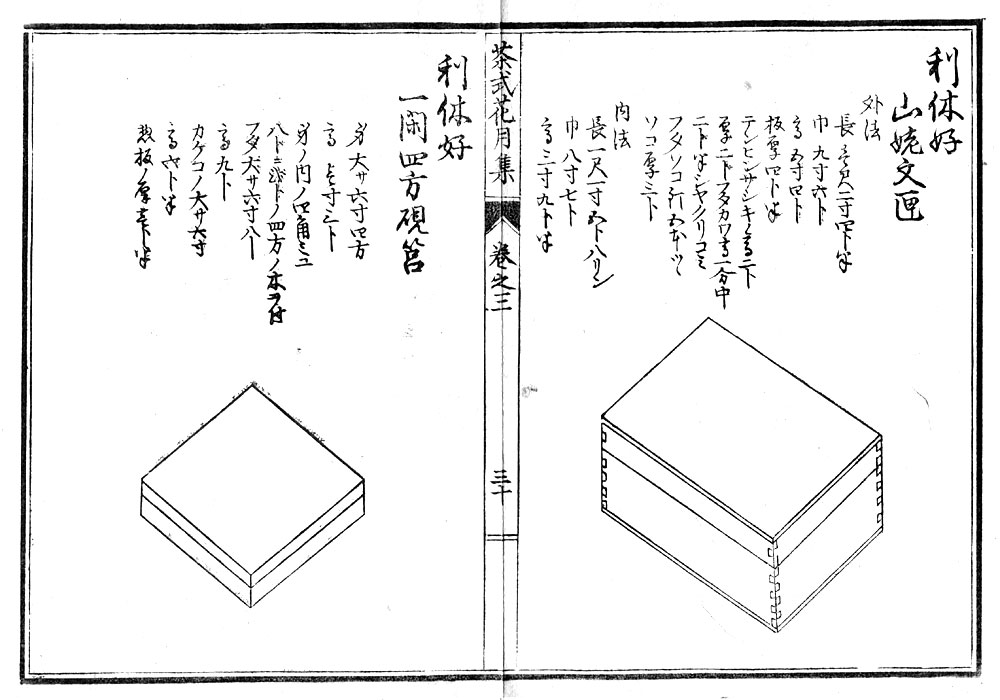 利休好
山姥文匣
外法
長 一尺二寸四ト半
巾 九寸六ト
高 五寸四ト
板厚四ト半
テンビンサシキ高二ト
厚二トフタカワ高一分中
ニト半シヤクリコミ
フタソコ釘五本ツヽ
ソコ厚三ト
内法
長一尺一寸五ト八リン
巾 八寸七ト
高 三寸九ト半
茶式花月集
巻之三
三十
利休好
一閑四方硯筥
身 大サ六寸四方
高 壱寸三ト
身ノ内ノ四角ミニ
四方ノ木ヲ付
フタ大サ六寸八ト
高 九ト
カケコノ大サ六寸
高サ六ト半
惣板ノ厚壱ト半